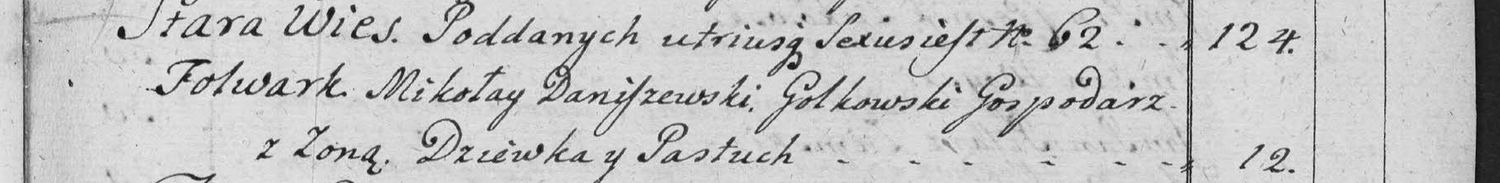 Stara Wies. Poddanych utriusq Sexus iest N. 62. . . 124.
Folwark. Mikołay Daniszewski, Golkowski Gospodarz
z Żoną. Dziewka y Pastuch - - - - - - 12.